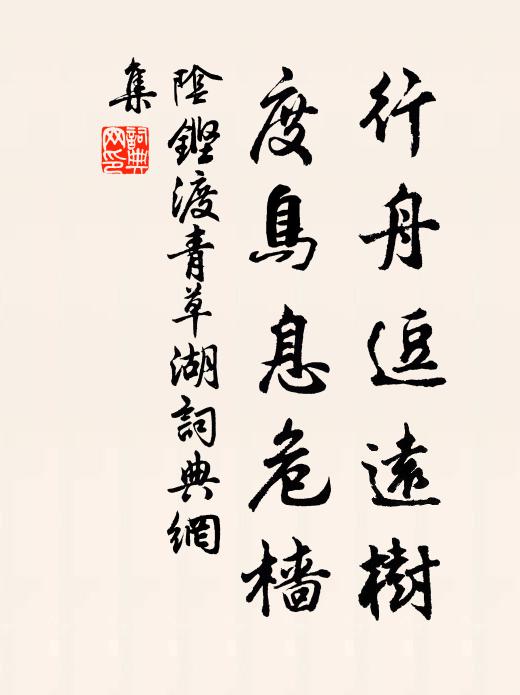 行舟逗遠樹
度鳥息危檣
陰鏗渡青草湖詞典網
集
詞典網印